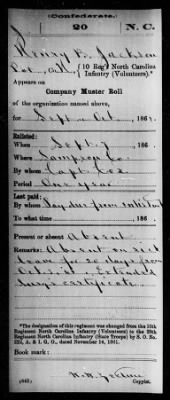 (Confederate.)
J 20 N. C.
Henry B. Jackson
Pvt., Co. , { 10 Reg't North Carolina
Infantry (Volunteers).*
Appears on
Company Muster Roll
of the organization named above,
for Sept & Oct , 186 .
Enlisted:
When Sept 7 , 186 .
Where Sampson Co
By whom Capt. Cox
Period One year
Last paid:
By whom Pay due from enlistment
To what time , 186 .
Present or absent Absent
Remarks: Absent on sick
leave for 20 days from
Oct. 1st. Extended
Surg's certificate
*The designation of this regiment was changed from the 10th
Regiment North Carolina Infantry (Volunteers) to the 20th
Regiment North Carolina Infantry (State Troops) by S. O. No.
222, A. & I. G. O., dated November 14, 1861.
Book mark:
(642)
Copyist.